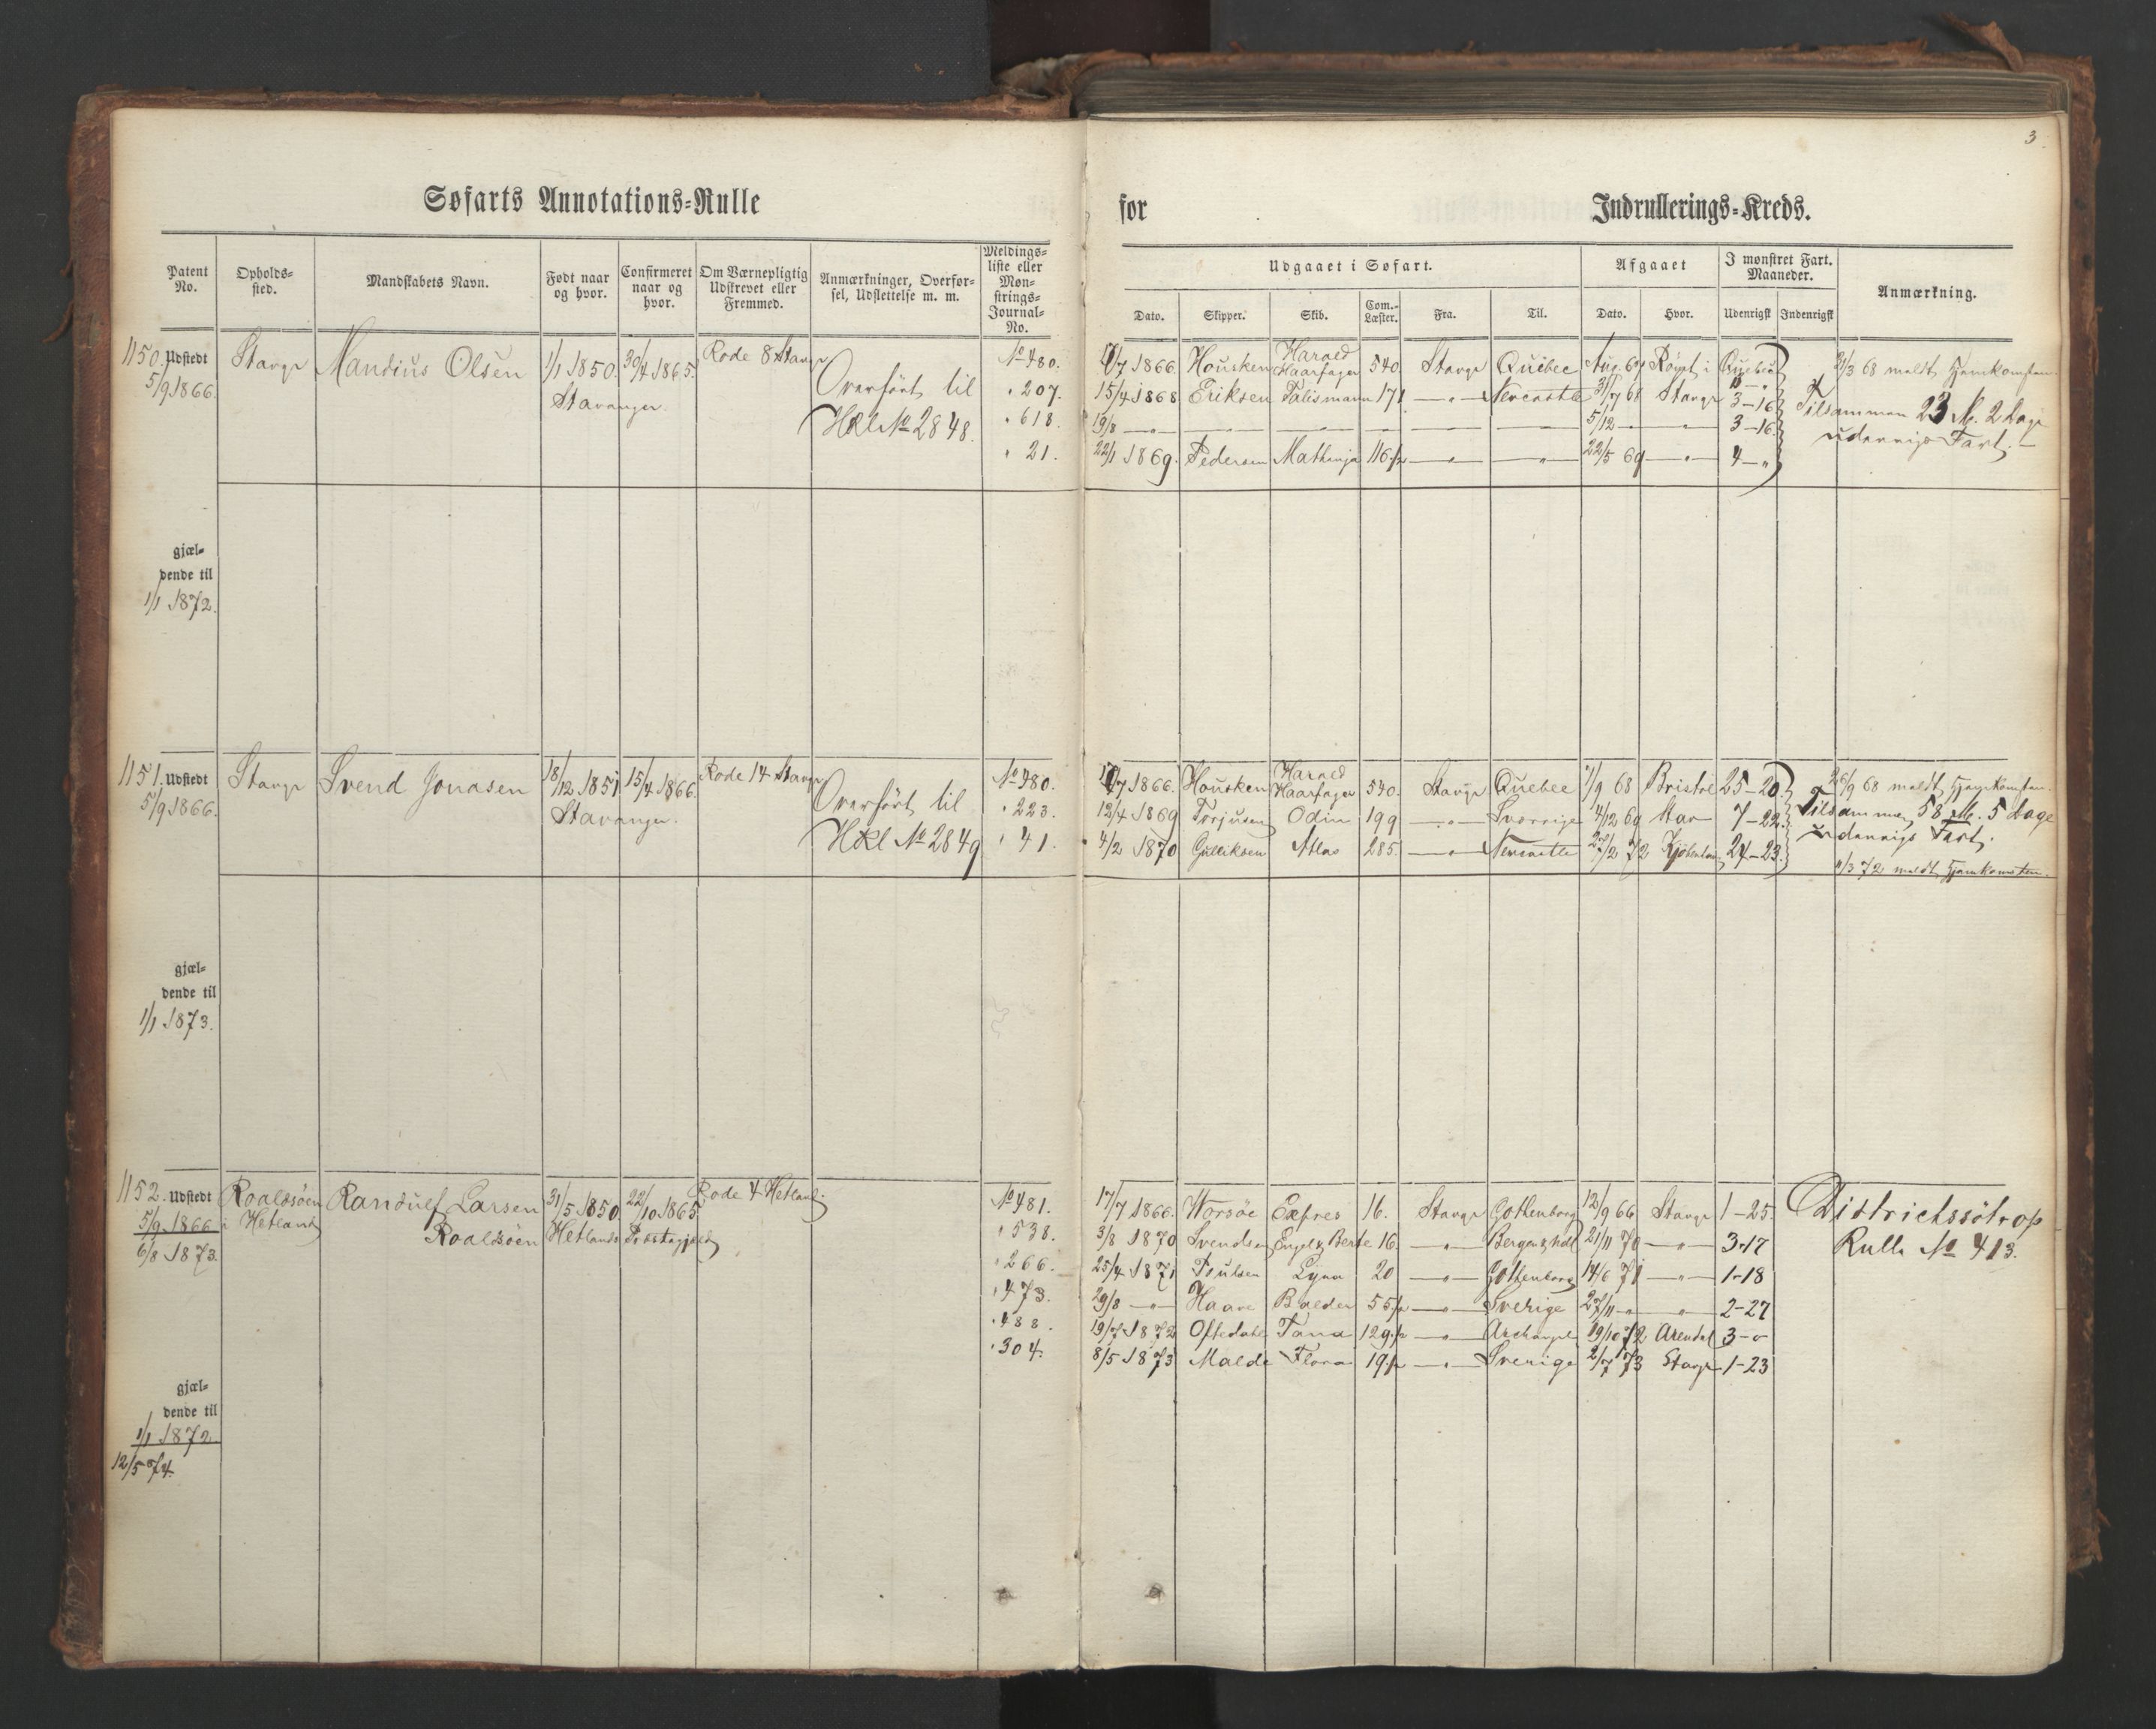 3
Søfarts Annotations=Rulle for Indrullerings=Kreds.
Patent No.
Opholds=sted.
Mandskabets Navn.
Født naar og hvor.
Confirmeret naar og hvor.
Om Værnepligtig Udskrevet eller Fremmed.
Anmærkninger, Overfør=sel, Udslettelse m. m.
Meldings=liste eller Møn=strings=Journal=No.
Udgaaet i Søfart.
Afgaaet
I mønstret Fart. Maaneder.
Anmærkning.
Dato. Skipper. Skib. Com.=Læster. Fra. Til. Dato. Hvor. Udenrigsk Indenrigsk
1150. Udstedt Stavgr Mandius Olsen 1/1 1850. 30/4 1865. Rode 8 Stavgr
5/9 1866. Stavanger.
Overført til
HklNo 2848.
No 480. 7/7 1866. Housken Harald Haarfager 540. Stavgr Quebec Aug. 67 Rømt i Quebec
" 207. 15/4 1868 Eriksen Talismann 171 —"— Newcastle 31/7 68 Stavgr 3–16
" 618. 19/8 —"— 5/12 —"— 3–16.
" 21. 22/1 1869. Pedersen 116 1/2 —"— —"— 22/5 69 —"— 4–"
21/3 68 meldt Hjemkomsten.
Tilsammen 23 M. 2 Dage
udenrigs Fart.
gjæl=
dende til
1/1 1872.
1151. Udstedt Stavgr Svend Jonasen 18/12 1851 15/4 1866. Rode 14 Stavgr
5/9 1866. Stavanger.
Overført til
Hkl No 2849
No 480. 7/7 1866. Housken Harald Haarfager 540. Stavgr Quebec 1/9 68 Bristol 25–20.
" 223. 12/4 1869 Torjusen Odin 199 —"— Sverrige 4/12 69 Stav 7–22.
" 41. 4/2 1870 Gulliksen Atlas 285. —"— Newcastle 27/2 72 24–23.
26/9 68 meldt Hjemkomsten.
Tilsammen 58 M. 5 Dage
udenrigs Fart.
11/3 72 meldt Hjemkomsten.
gjæl=
dende til
1/1 1873.
1152. Udstedt Roaldsöen Randulf Larsen 31/5 1850 22/10 1865 Rode 4 Hetland.
5/9 1866 i Hetland Roaldsöen Hetlands Præstegjæld
6/8 1873.
No 481. 17/7 1866. Worsöe Expres 16. Stavgr Gothenborg 12/9 66 Stavgr 1–25.
" 538. 3/8 1870 Svendsen Engel Berte 16. —"— 21/11 70 —"— 3–17
" 266. 25/4 1871 Poulsen Lyna 20 —"— Gothenborg 14/6 71 —"— 1–18
" 473. 29/8 —"— Haave Balder 55 1/2 —"— Sverige 27/11 —"— " 2–27
" 488. 19/7 1872 Oftedahl Tana 129 1/2 —"— Archangel 19/10 72 Arendal 3–"
" 304. 8/5 1873 Malde Flora 19 1/2 —"— Sverige 2/7 73 Stavgr 1–23
Districtssötrop
Rulle No 413.
gjæl=
dende til
1/1 1872.
12/5 74.